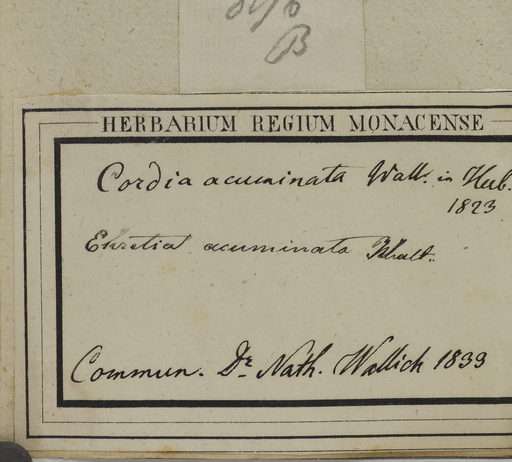 B
HERBARIUM REGIUM MONACENSE
Cordia acuminata Wall. in Herb.
1823
Ehretia acuminata
Commun. Dr. Nath. Wallich 1833